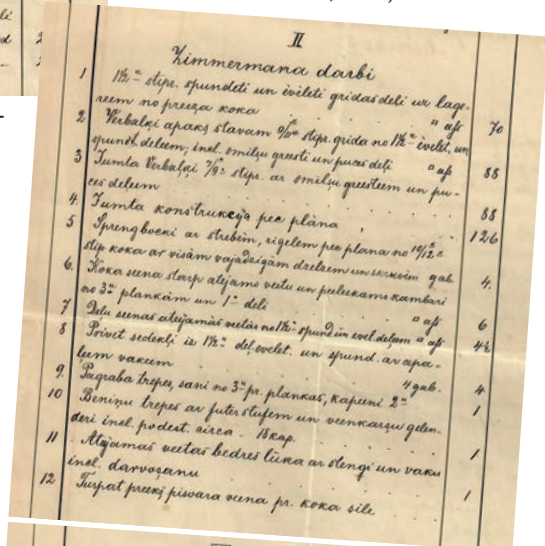 II
Zimmermana darbi
1 1½" stipr. spundeti un ēvileti grīdas deļi uz lage-
reem no preeža koka " aß 70
2 Verbalķi apakš stavam 9/11" stipr. grīda no 1½" ēvelet. un
spundet. deleem; inel. smilšu greesti un puces deļi " aß 88
3 Jumta Verbalķi 7/9" stipr. ar smilšu greesteem un pu-
ces deleem 88
4. Jumta konstrukcija pec plana 126
5 Sprengbocki ar strebēm, rigelem pec plana no 10/12"
stip koka ar visām vajadzigām dzelzem un skruvēm gab. 4.
6. Koka seena starp atejamo veetu un peeleekamo kambari
no 3" plankām un 1" deli " aß 6
7 Deļu seenas atejamās veetās no 1½" spund. un evel. deļeem " aß 4½
8 Privet sedekļi iz 1½" deļ. evelet. un spund. ar apa-
leem vakeem 4 gab. 4
9. Pagraba trepes, sani no 3" pr. plankas, kapeeni 2" 1
10 Beniņu trepes ar futerstufem un veenkaršu gelen-
deri inel. podest. circa 18 kap. 1
11 Atejamas veetas bedres lūka ar stengi un vaku
inel. darvošanu 1
12 Turpat preekš pisvara veena pr. koka sile